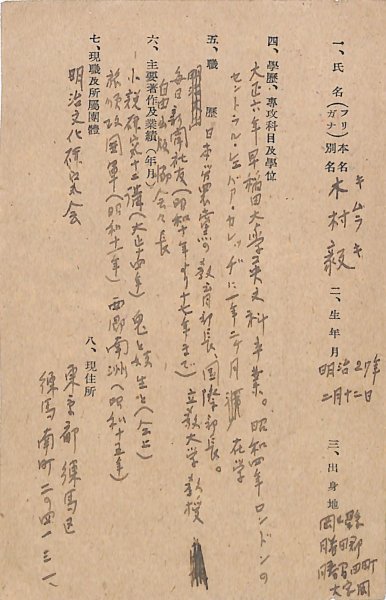 一、氏名(フリガナ)本名 別名
キムラキ
木村毅
二、生年月
明治27年
二月十二日
三、出身地
岡山縣
勝田郡
勝田町
四、學歷、專攻科目及學位
大正六年早稲田大學英文科卒業。昭和四年ロンドンの
セントラル・レバア・カレッヂに一年二ヶ月
在学
五、職歷
日本労農黨の教育部長、国際部長。
毎日新聞社友(昭和十年より十七年まで)立教大学教授
自由出版
会々長
六、主要著作及業績(年月)
小説研究十六講(大正十四年)
旅順攻囲軍(昭和十一年)西郷南洲(昭和十五年)
七、現職及所屬團體
明治文化研究会
八、現住所
東京都練馬区
練馬南町二ノ四一三一